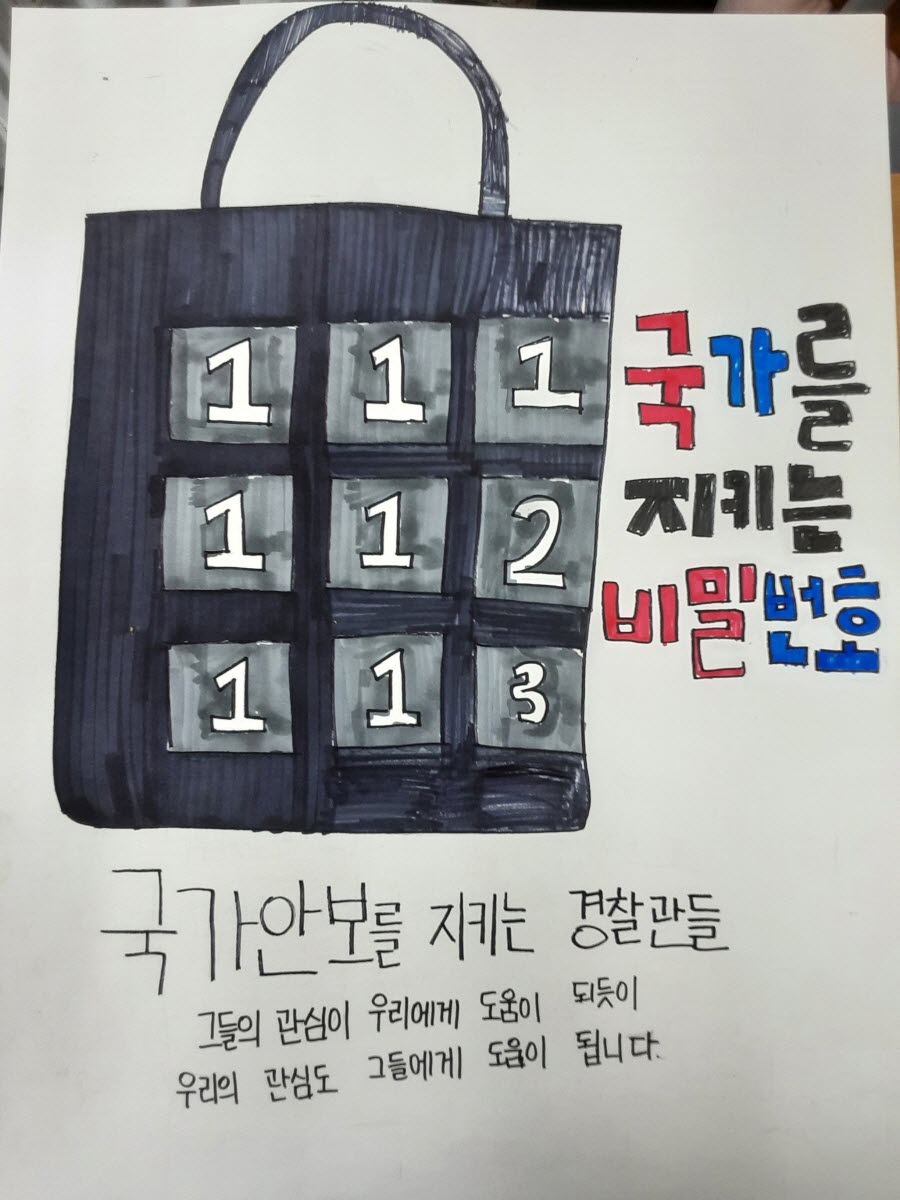 1 1 1
1 1 2
1 1 3
국가를
지키는
비밀번호
국가안보를 지키는 경찰관들
그들의 관심이 우리에게 도움이 되듯이
우리의 관심도 그들에게 도움이 됩니다.